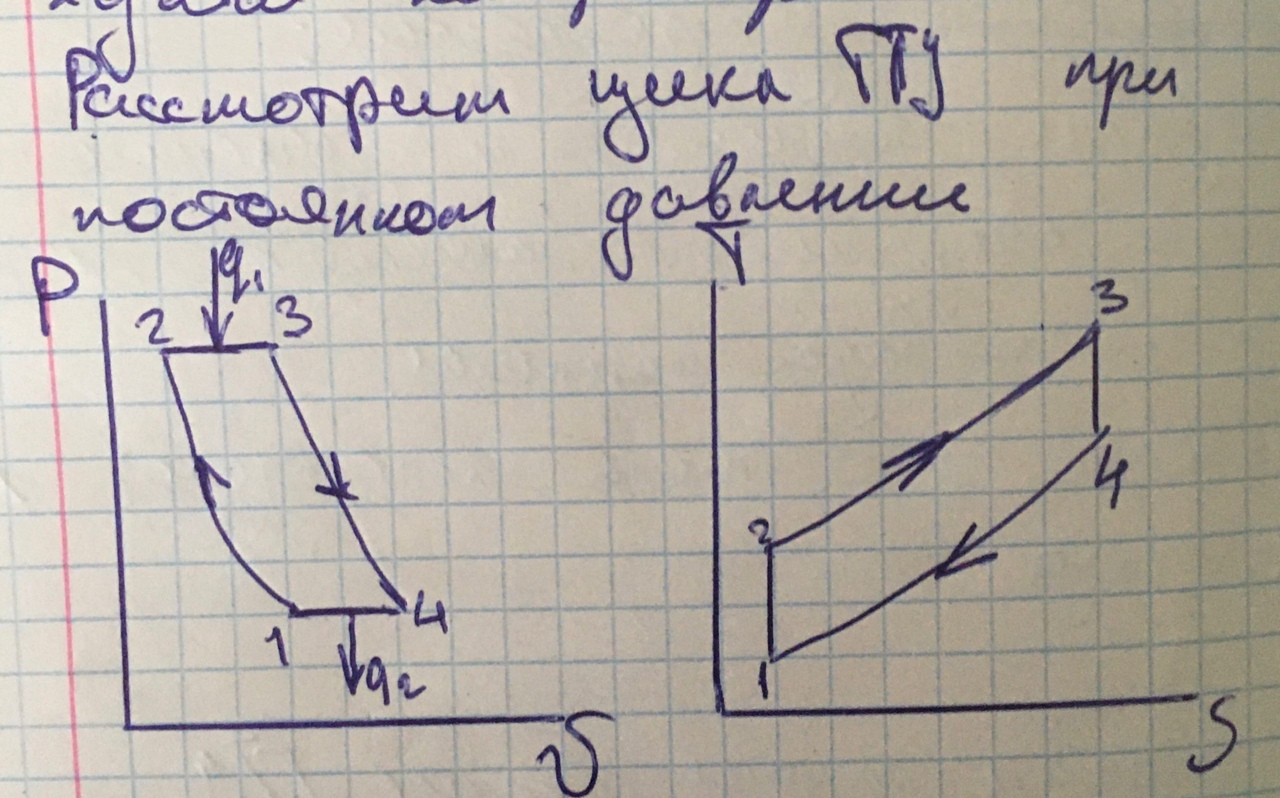 Рассмотрим цикл ГТУ при
постоянном давлении
P q₁ T
2 3 3
2 4
1 4 1
q₂
υ S